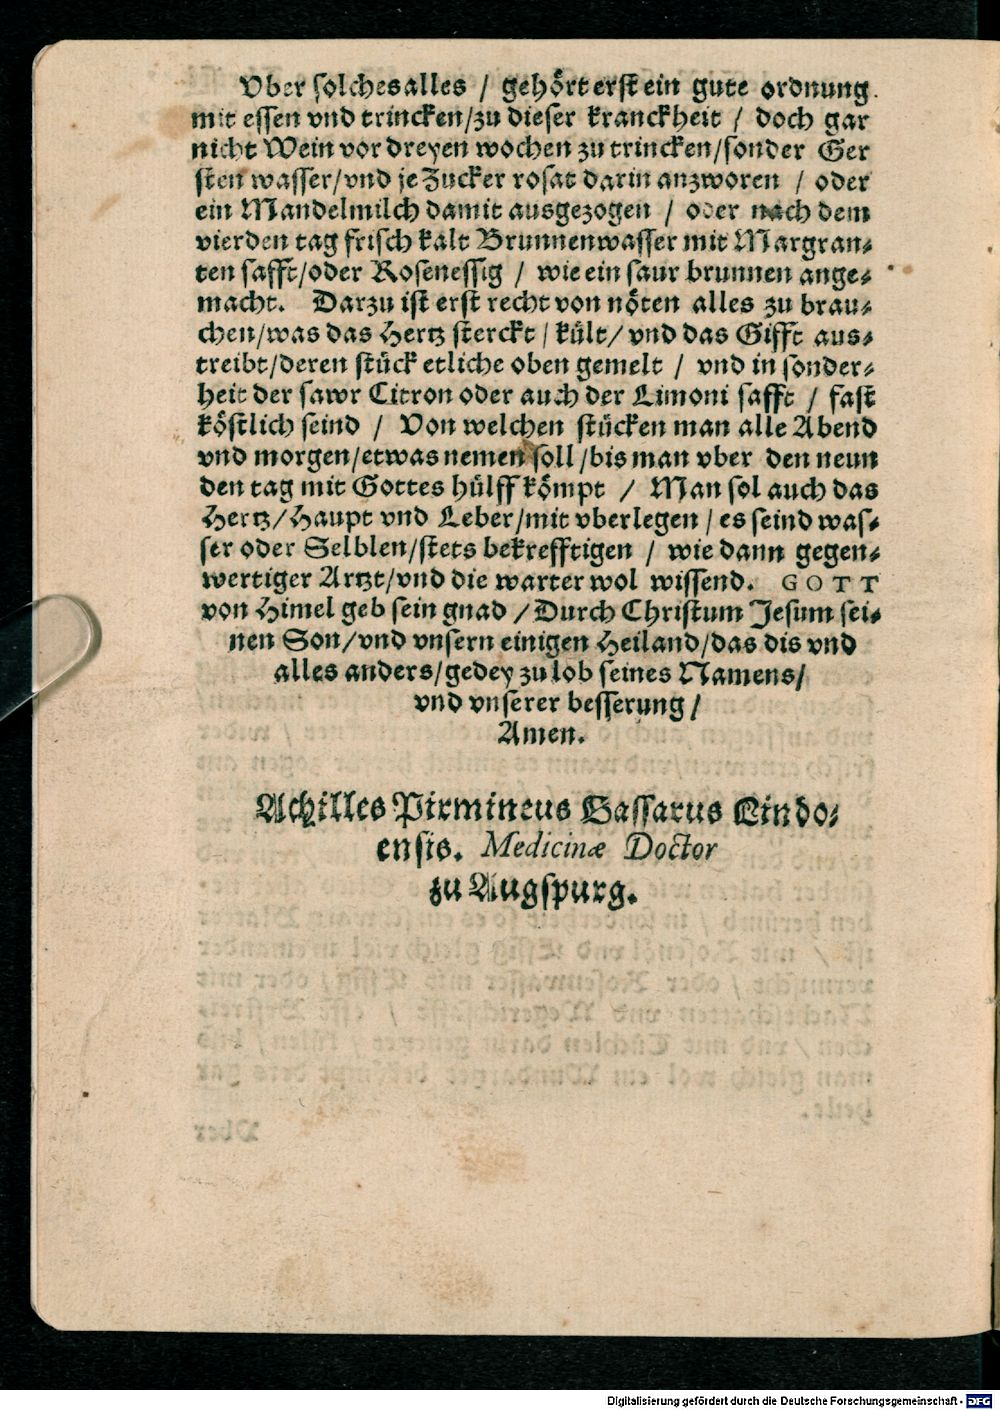 Vber solches alles / gehört erst ein gute ordnung
mit essen vnd trincken/zu dieser kranckheit / doch gar
nicht Wein vor dreyen wochen zu trincken/sonder Ger
sten wasser/vnd je Zucker rosat darin anzworen / oder
ein Mandelmilch damit ausgezogen / oder nach dem
vierden tag frisch kalt Brunnenwasser mit Margran⸗
ten safft/oder Rosenessig / wie ein saur brunnen ange⸗
macht. Darzu ist erst recht von nöten alles zu brau⸗
chen/was das Hertz sterckt / kült/ vnd das Gifft aus⸗
treibt/deren stück etliche oben gemelt / vnd in sonder⸗
heit der sawr Citron oder auch der Limoni safft / fast
köstlich seind / Von welchen stücken man alle Abend
vnd morgen/etwas nemen soll /bis man vber den neun
den tag mit Gottes hülff kömpt / Man sol auch das
Hertz/Haupt vnd Leber/mit vberlegen / es seind was⸗
ser oder Selblen/stets bekrefftigen / wie dann gegen⸗
wertiger Artzt/vnd die warter wol wissend. GOTT
von Himel geb sein gnad /Durch Christum Jesum sei⸗
nen Son/vnd vnsern einigen Heiland/das dis vnd
alles anders/gedey zu lob seines Namens/
vnd vnserer besserung /
Amen.
Achilles Pirmineus Gassarus Lindo⸗
ensis. Medicinæ Doctor
zu Augspurg.
Digitalisierung gefördert durch die Deutsche Forschungsgemeinschaft - DFG